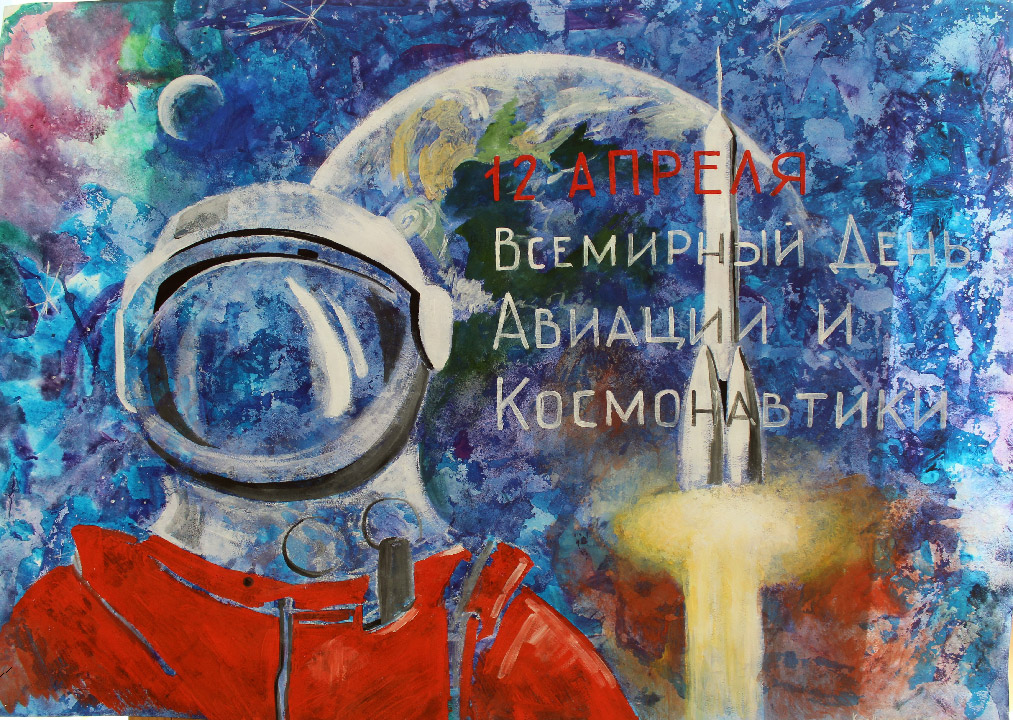 12 АПРЕЛЯ
Всемирный День
Авиации и
Космонавтики